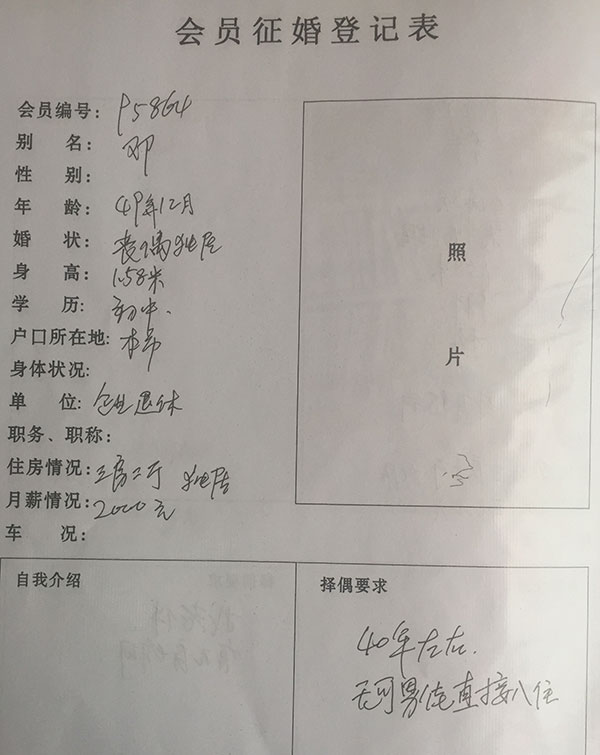 会员征婚登记表
会员编号: P5864
别 名: 邓
性 别:
年 龄: 49年12月
婚 状: 丧偶独居
身 高: 1.58米
学 历: 初中.
户口所在地: 本市
身体状况:
单 位: 企业退休
职务、职称:
住房情况: 三房二厅 独居
月薪情况: 2000元
车 况:
照
片
自我介绍
择偶要求
40年左右.
男 直接入住